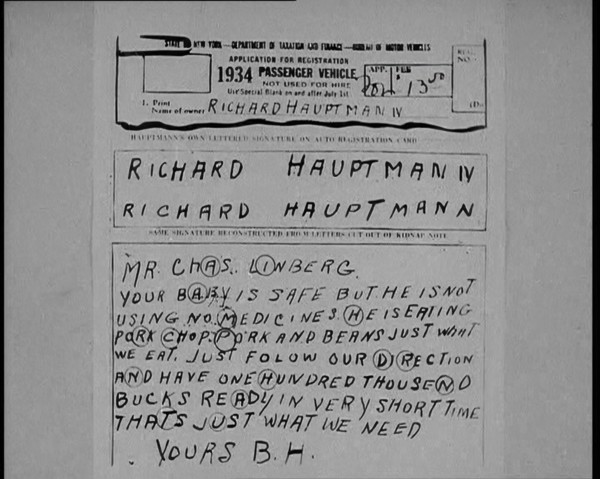 STATE OF NEW YORK—DEPARTMENT OF TAXATION AND FINANCE—BUREAU OF MOTOR VEHICLES
APPLICATION FOR REGISTRATION
1934 PASSENGER VEHICLE
NOT USED FOR HIRE
Use Special Blank on and after July 1st
APP. FEB
13 50
REG.
NO.
1. Print
Name of owner RICHARD HAUPTMAN IV
HAUPTMANN'S OWN LETTERED SIGNATURE ON AUTO REGISTRATION CARD
RICHARD HAUPTMAN IV
RICHARD HAUPTMANN
SAME SIGNATURE RECONSTRUCTED FROM LETTERS CUT OUT OF KIDNAP NOTE
MR. CHAS. LINBERG.
YOUR BABY IS SAFE BUT HE IS NOT
USING NO MEDICINES. HE IS EATING
PORK CHOP. PORK AND BEANS JUST WHAT
WE EAT. JUST FOLOW OUR DIRECTION
AND HAVE ONE HUNDRED THOUSEND
BUCKS READY IN VERY SHORT TIME
THATS JUST WHAT WE NEED
YOURS B.H.